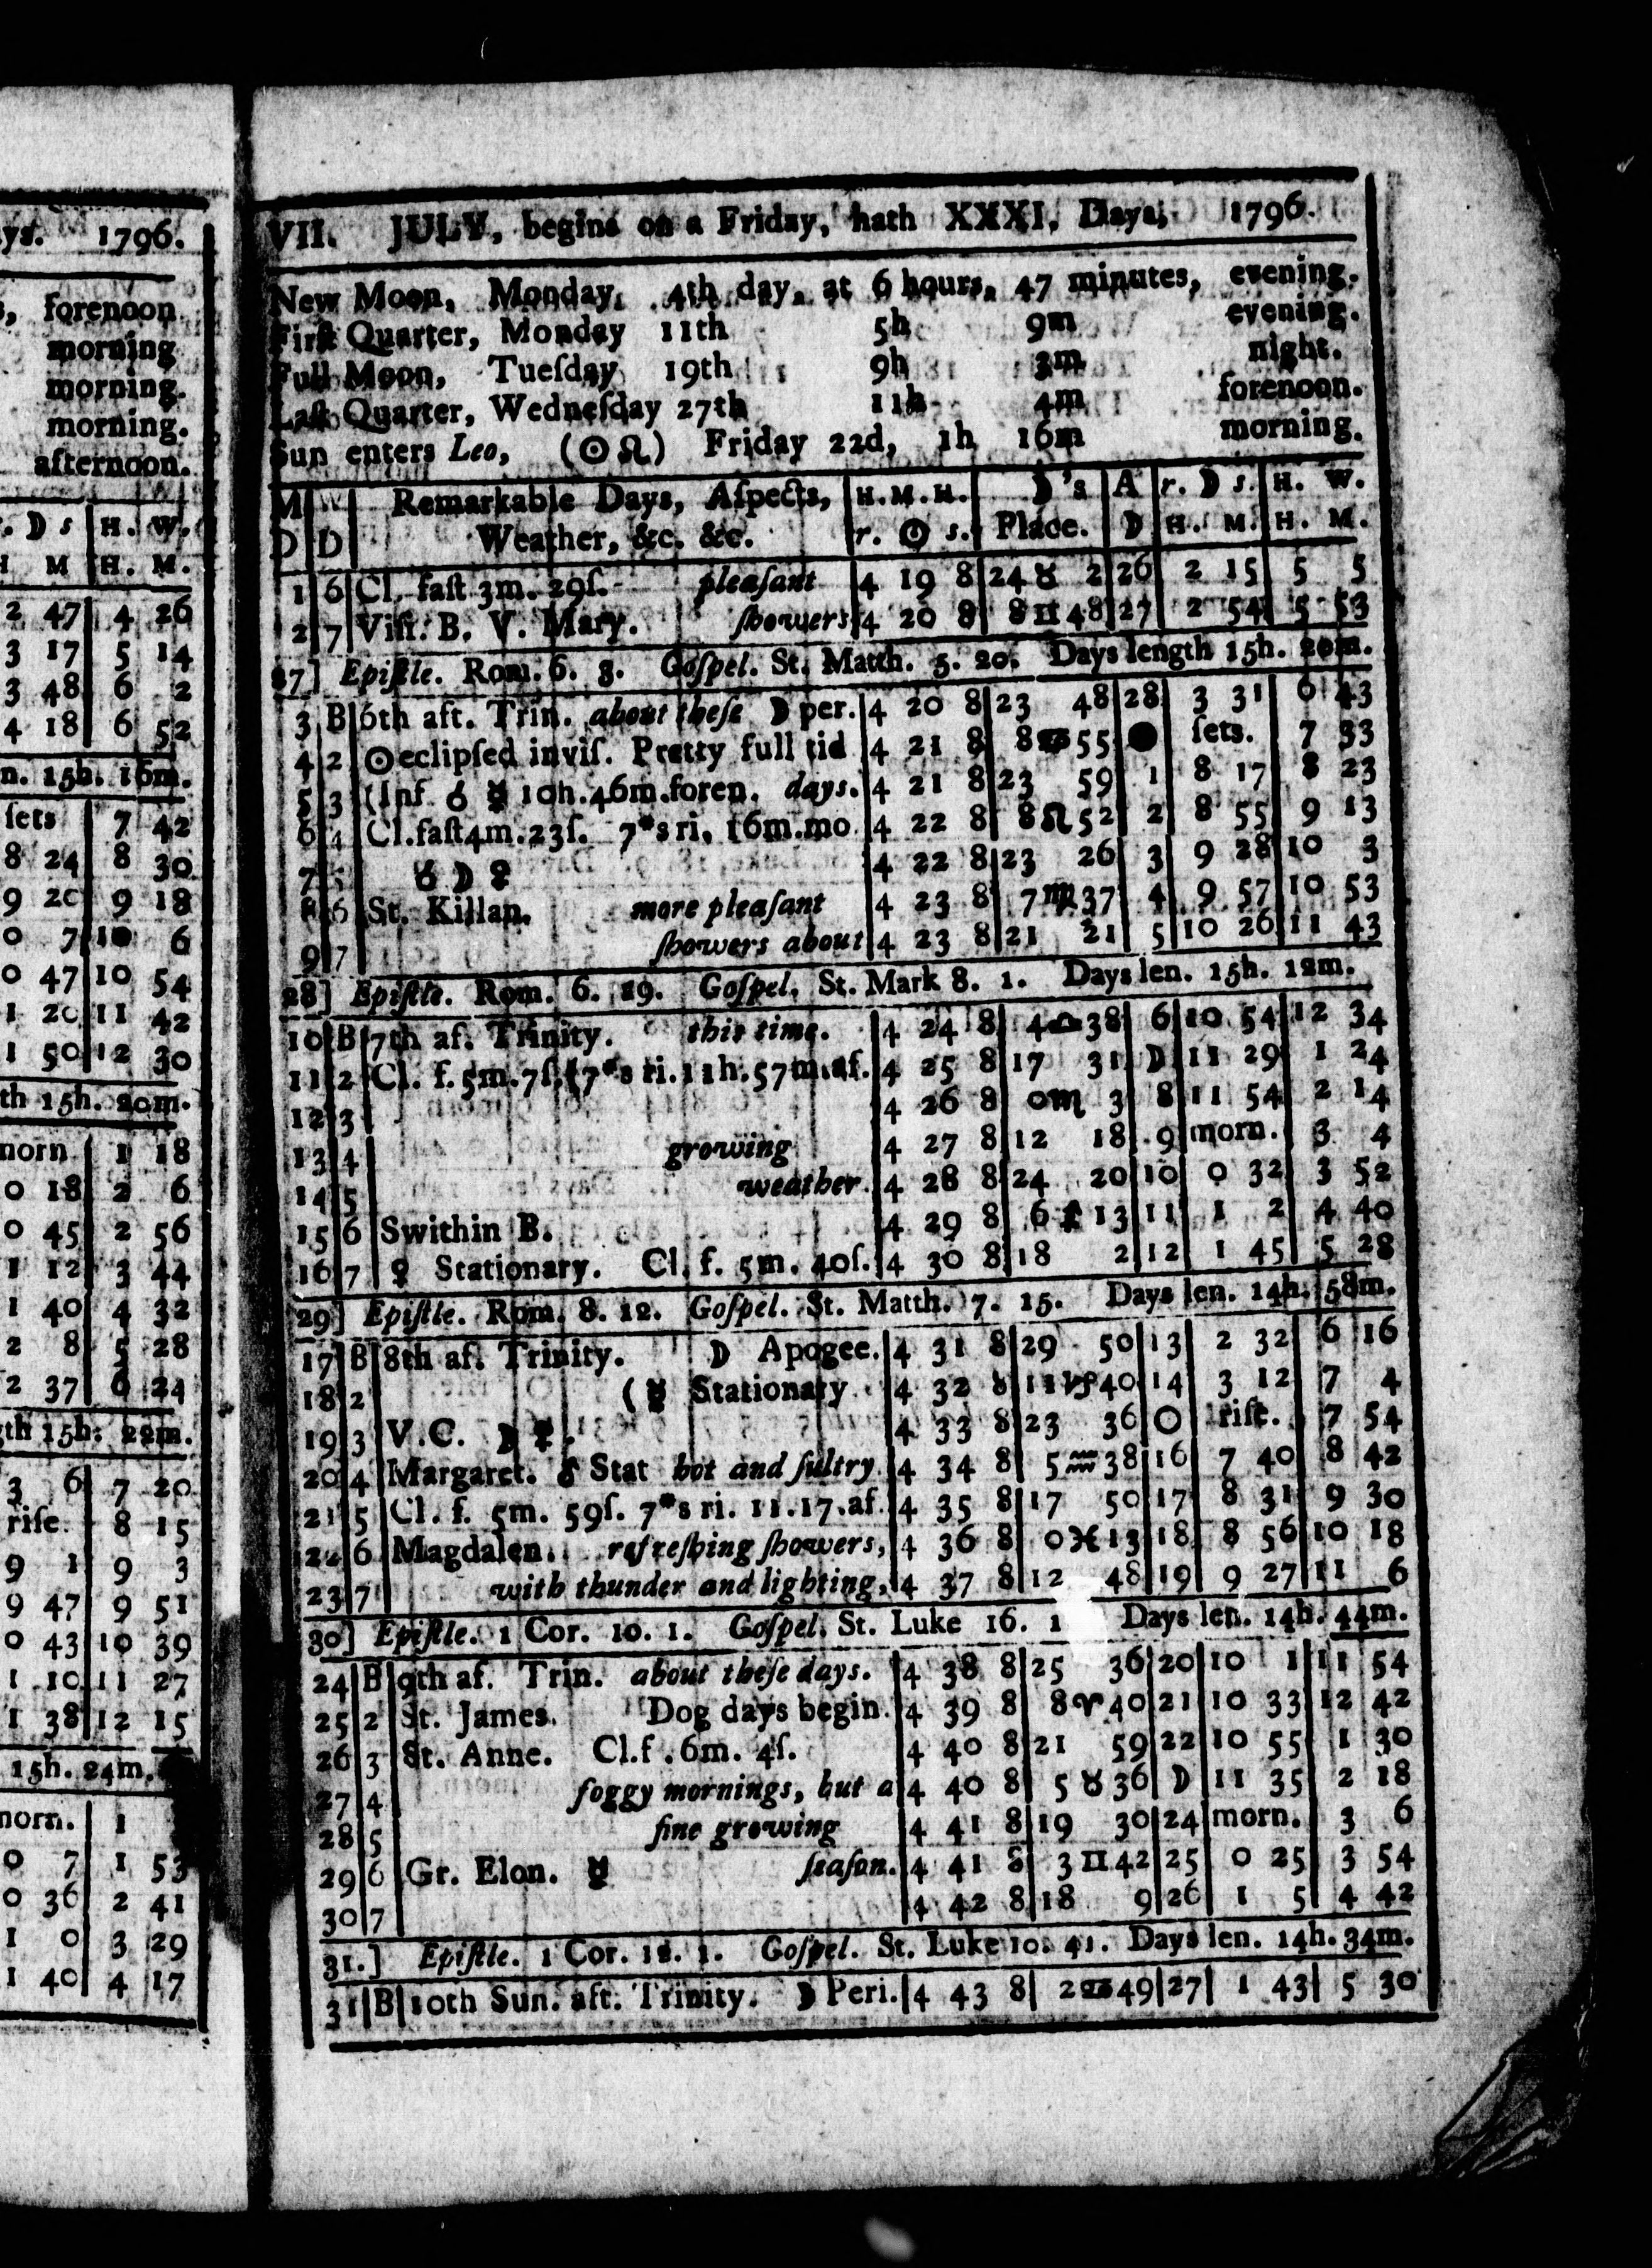 ys. 1796.
s, forenoon
morning
morning.
morning.
afternoon.
. ☽ s H. W.
H M H. M.
2 47 4 26
3 17 5 14
3 48 6 2
4 18 6 52
n. 15h. 16m.
ſets 7 42
8 24 8 30
9 20 9 18
0 7 10 6
0 47 10 54
1 20 11 42
1 50 12 30
th 15h. 20m.
norn 1 18
0 18 2 6
0 45 2 56
1 12 3 44
1 40 4 32
2 8 5 28
2 37 6 24
th 15h. 22m.
3 6 7 20
riſe. 8 15
9 1 9 3
9 47 9 51
0 43 10 39
1 10 11 27
1 38 12 15
15h. 24m.
norn. 1
0 7 1 53
0 36 2 41
1 0 3 29
1 40 4 17
VII. JULY, begins on a Friday, hath XXXI, Days, 1796.
New Moon, Monday, 4th day, at 6 hours, 47 minutes, evening.
Firſt Quarter, Monday 11th 5h 9m evening.
Full Moon, Tueſday 19th 9h 3m night.
Laſt Quarter, Wedneſday 27th 11h 4m forenoon.
Sun enters Leo, (☉ ♌) Friday 22d, 1h 16m morning.
M W Remarkable Days, Aſpects, H. M. H. ☽'s A r. ☽ s. H. W.
D D Weather, &c. &c. r. ☉ s. Place. ☽ H. M. H. M.
1 6 Cl. faſt 3m. 29ſ. pleaſant 4 19 8 24 ♉ 2 26 2 15 5 5
2 7 Viſit. B. V. Mary. ſhowers 4 20 8 8 ♊ 48 27 2 54 5 53
27] Epiſtle. Rom. 6. 3. Goſpel. St. Matth. 5. 20. Days length 15h. 20m.
3 B 6th aft. Trin. about theſe ☽ per. 4 20 8 23 48 28 3 31 6 43
4 2 ☉ eclipſed inviſ. Pretty full tid 4 21 8 8 ♋ 55 ● ſets. 7 33
5 3 (Inf. ☌ ☿ 10h. 46m. foren. days. 4 21 8 23 59 1 8 17 8 23
6 4 Cl. faſt 4m. 23ſ. 7*s ri. 16m. mo 4 22 8 8 ♌ 52 2 8 55 9 13
7 5 ☌ ☽ ♀ 4 22 8 23 26 3 9 28 10 3
8 6 St. Killan. more pleaſant 4 23 8 7 ♍ 37 4 9 57 10 53
9 7 ſhowers about 4 23 8 21 21 5 10 26 11 43
28] Epiſtle. Rom. 6. 19. Goſpel. St. Mark 8. 1. Days len. 15h. 12m.
10 B 7th af. Trinity. this time. 4 24 8 4 ♎ 38 6 10 54 12 34
11 2 Cl. f. 5m. 7ſ. 7*s ri. 11h. 57m. af. 4 25 8 17 31 ☽ 11 29 1 24
12 3 4 26 8 0 ♏ 3 8 11 54 2 14
13 4 growing 4 27 8 12 18 9 morn. 3 4
14 5 weather. 4 28 8 24 20 10 0 32 3 52
15 6 Swithin B. 4 29 8 6 ♐ 13 11 1 2 4 40
16 7 ♀ Stationary. Cl. f. 5m. 40ſ. 4 30 8 18 2 12 1 45 5 28
29] Epiſtle. Rom. 8. 12. Goſpel. St. Matth. 7. 15. Days len. 14h. 58m.
17 B 8th af. Trinity. ☽ Apogee. 4 31 8 29 50 13 2 32 6 16
18 2 (☿ Stationary 4 32 8 11 ♑ 40 14 3 12 7 4
19 3 V.C. ☽ ♀. 4 33 8 23 36 ○ riſe. 7 54
20 4 Margaret. ♂ Stat hot and ſultry 4 34 8 5 ♒ 38 16 7 40 8 42
21 5 Cl. f. 5m. 59ſ. 7*s ri. 11. 17. af. 4 35 8 17 50 17 8 31 9 30
22 6 Magdalen. refreſhing ſhowers, 4 36 8 0 ♓ 13 18 8 56 10 18
23 7 with thunder and lighting, 4 37 8 12 48 19 9 27 11 6
30] Epiſtle. 1 Cor. 10. 1. Goſpel. St. Luke 16. 1 Days len. 14h. 44m.
24 B 9th af. Trin. about theſe days. 4 38 8 25 36 20 10 1 11 54
25 2 St. James. Dog days begin. 4 39 8 8 ♈ 40 21 10 33 12 42
26 3 St. Anne. Cl. f. 6m. 4ſ. 4 40 8 21 59 22 10 55 1 30
27 4 foggy mornings, but a 4 40 8 5 ♉ 36 ☽ 11 35 2 18
28 5 fine growing 4 41 8 19 30 24 morn. 3 6
29 6 Gr. Elon. ☿ ſeaſon. 4 41 8 3 ♊ 42 25 0 25 3 54
30 7 4 42 8 18 9 26 1 5 4 42
31.] Epiſtle. 1 Cor. 12. 1. Goſpel. St. Luke 10. 41. Days len. 14h. 34m.
31 B 10th Sun. aft. Trinity. ☽ Peri. 4 43 8 2 ♋ 49 27 1 43 5 30